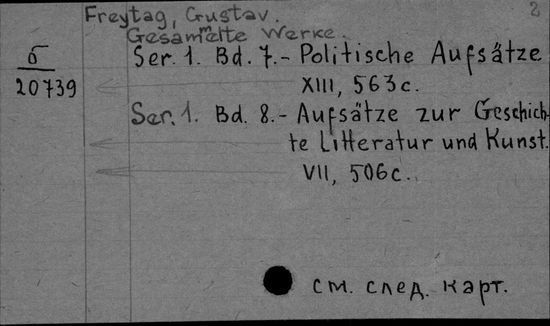 2
Freytag, Gustav.
Gesammelte Werke.
Б
20739
Ser. 1. Bd. 7.- Politische Aufsätze
XIII, 563 c.
Ser. 1. Bd. 8.- Aufsätze zur Geschich-
te Litteratur und Kunst.
VII, 506 c.
см. след. карт.